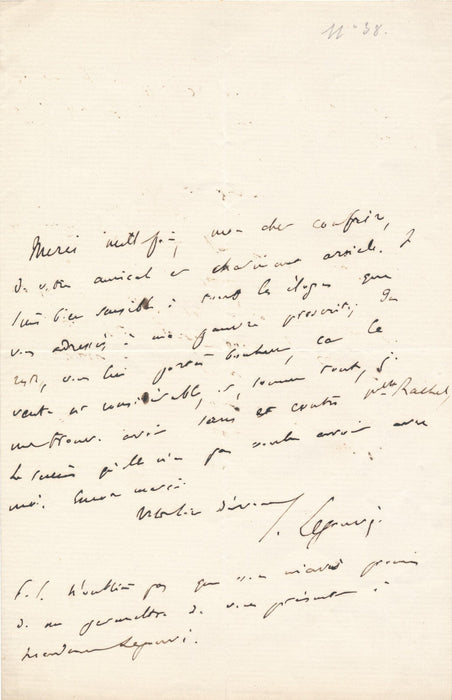 N° 38.
Merci mille fois, mon cher confrère,
de votre amical et charmant article. Je
suis bien sensible à tous les éloges que
vous adressez à ma pauvre proscrite; du
reste, vous lui portez bonheur, car la
vente est considérable, et, somme toute, je
me trouve avoir sans et contre Mlle Rachel,
le succès qu'elle n'a pas voulu avoir avec
moi. Encore merci.
Votre bien dévoué
E. Legouvé.
P.S. N'oubliez pas que vous m'avez promis
de me permettre de vous présenter à
Madame Legouvé.